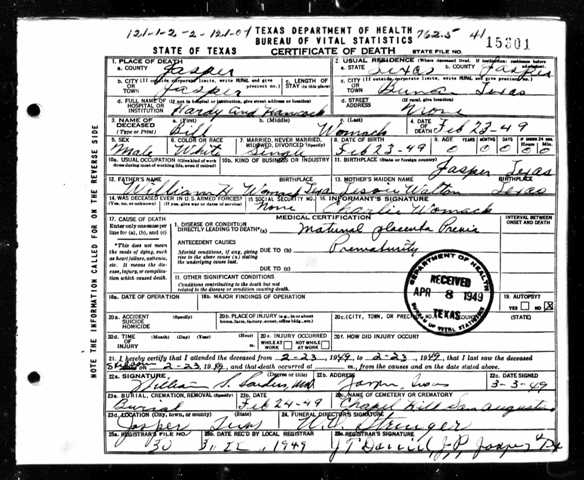 121-1-2-2-121-01 TEXAS DEPARTMENT OF HEALTH 762.5 41
BUREAU OF VITAL STATISTICS 15301
STATE OF TEXAS CERTIFICATE OF DEATH STATE FILE NO.
1. PLACE OF DEATH 2. USUAL RESIDENCE (Where deceased lived. If institution: residence before
a. COUNTY Jasper a. STATE Texas b. COUNTY Jasper
b. CITY (If outside corporate limits, write RURAL and give precinct no.) c. LENGTH OF STAY (in this place) c. CITY (If outside corporate limits, write RURAL and give precinct no.)
OR TOWN Jasper OR TOWN Texas
d. FULL NAME OF (If not in hospital or institution, give street address or location) d. STREET ADDRESS None
HOSPITAL OR INSTITUTION Hardy and Hancock
3. NAME OF DECEASED (Type or Print) a. (First) Bill b. (Middle) c. (Last) Womack 4. DATE OF DEATH Feb 23-49
5. SEX Male 6. COLOR OR RACE White 7. MARRIED, NEVER MARRIED, WIDOWED, DIVORCED (Specify) Single 8. DATE OF BIRTH Feb 23-49 9. AGE 0 0 0 0 0
10a. USUAL OCCUPATION (Give kind of work done during most of working life, even if retired) 10b. KIND OF BUSINESS OR INDUSTRY 11. BIRTHPLACE (State or foreign country) Jasper Texas
12. FATHER'S NAME BIRTHPLACE 13. MOTHER'S MAIDEN NAME BIRTHPLACE
William B Womack Texas Walton Texas
14. WAS DECEASED EVER IN U.S. ARMED FORCES? (Yes, no, or unknown) (If yes, give war or dates of service) 15. SOCIAL SECURITY NO. None 16. INFORMANT'S SIGNATURE Charlie Womack
17. CAUSE OF DEATH MEDICAL CERTIFICATION INTERVAL BETWEEN ONSET AND DEATH
Enter only one cause per line for (a), (b), and (c)
I. DISEASE OR CONDITION DIRECTLY LEADING TO DEATH*(a) Maternal placenta Previa
*This does not mean the mode of dying, such as heart failure, asthenia, etc. It means the disease, injury, or complication which caused death.
ANTECEDENT CAUSES
Morbid conditions, if any, giving rise to the above cause (a) stating the underlying cause last.
DUE TO (b) Prematurity
DUE TO (c)
II. OTHER SIGNIFICANT CONDITIONS
Conditions contributing to the death but not related to the disease or condition causing death.
DEPARTMENT OF HEALTH
RECEIVED
APR 8 1949
TEXAS
BUREAU OF VITAL STATISTICS
18a. DATE OF OPERATION 18b. MAJOR FINDINGS OF OPERATION 19. AUTOPSY?
YES NO X
20a. ACCIDENT SUICIDE HOMICIDE (Specify) 20b. PLACE OF INJURY (e.g., in or about home, farm, factory, street, office bldg., etc.) 20c. (CITY, TOWN, OR PRECINCT NO.) (STATE)
20d. TIME OF INJURY (Month) (Day) (Year) (Hour) 20e. INJURY OCCURRED WHILE AT WORK NOT WHILE AT WORK 20f. HOW DID INJURY OCCUR?
21. I hereby certify that I attended the deceased from 2-23, 1949, to 2-23, 1949, that I last saw the deceased
2-23 1949, and that death occurred at m., from the causes and on the date stated above.
22a. SIGNATURE (Degree or title) 22b. ADDRESS 22c. DATE SIGNED
William S. M.D. Jasper, Texas 3-3-49
23a. BURIAL, CREMATION, REMOVAL (Specify) 23b. DATE Feb 24-49 23c. NAME OF CEMETERY OR CREMATORY Chapel Hill San Augustine
23d. LOCATION (City, town, or county) (State) 24. FUNERAL DIRECTOR'S SIGNATURE
Jasper Texas Stringer
25a. REGISTRAR'S FILE NO. 30 25b. DATE REC'D BY LOCAL REGISTRAR 1949 25c. REGISTRAR'S SIGNATURE
NOTE THE INFORMATION CALLED FOR ON THE REVERSE SIDE